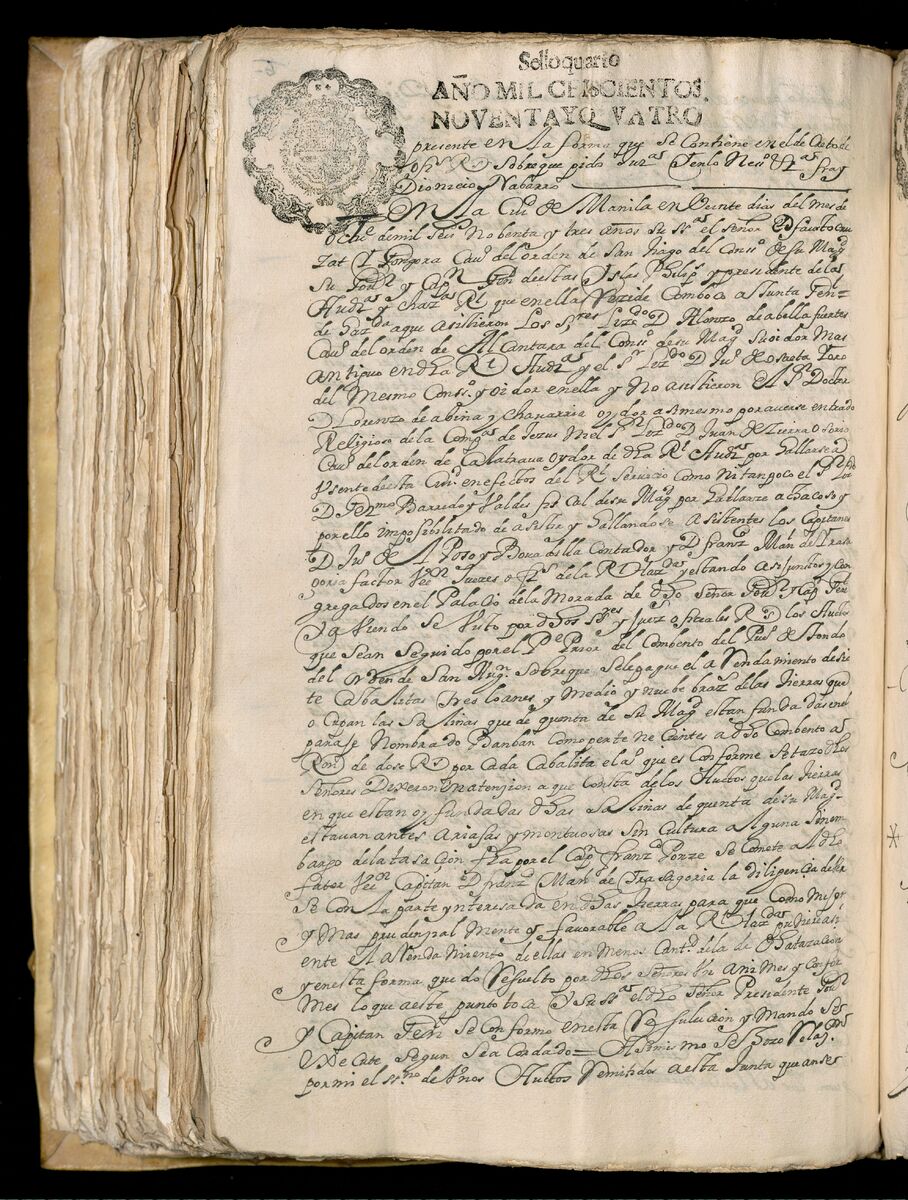 Sello quarto
AÑO MIL CEISCIENTOS.
NOVENTA Y QVATRO
presente en la forma que se Contiene en el de
Ofiz Rl sobre que pide fray
Dionicio Nabarro
En la Ciu de Manila en Veinte dias del mes de
de mil Seis Nobenta y tres años Su Sa el señor D fausto Cru
zat y Gongora Cauo del orden de San Tiago del Conso de su Magd
Su Gour y Capn Genl de estas Islas Philips y presidente de la
Auda y Chanza Rl que en ella Rezide Combocó a Junta Genl
de Hazda a que asistieron Los Sres Lizdo D Alonzo de abella fuertes
Cauo del orden de Alcantara del Conso de su Magd Su oidor Mas
Antiguo en dha Rl Auda y el Sr Lizdo D Juo de Ozaeta y oro
del Mesmo Conso y oidor en ella y No asistieron el Sr Doctor
D Lorenzo de abina y Chavarria oydor asimesmo por averse entrado
Religioso de la Compa de Jezus ni el Sr Lizdo D Juan de Sierra Osorio
Cauo del orden de Calatrava oydor de dha Rl Auda por hallarse a
Vsente de esta Ciud en efectos del Rl Servicio Como ni tanpoco el Sr Lizdo
D Barredo y Valdes fiscal de su Magd por hallarze achacoso y
por ello imposibilitado de asistir y hallandose Asistentes los Capitanes
D Juo de el Poso y Bouadilla Contador y D Franzo Mani de Trasa
goria factor Veedr Juezes ofizs de la Rl Hazda y estando asi Juntos y Con
gregados en el Palacio de la Morada de dho Señor Gour y Capn Genl
Y aViendo se Visto por dhos Sres y Juezes ofiziales Rs los Auttos
que sean Seguido por el Pe Prior del Combento del Puo de Tondo
del Orden de San Augn Sobre que Sele pague el aRendamiento de sie
te Cabalitas tres loanes y Medio y nuebe brazs de las tierras que
ocupan las Salinas que de quenta de Su Magd estan fundadas en el
paraje Nombrado Banban Como pertenecientes a dho Combento a
Ron de dose Rs por Cada Cabalita el as que es Conforme Se tazo dhos
Señores Dixeron en atension a que Consta de los Auttos que las tierras
en que estan oy fundadas dhas Salinas de quenta de su Magd
estavan antes Ariasas y montuosas sin Cultura alguna Sinem
bargo de la tasacion fha por el Capn Franzo Ponze Se Comete al dho
fator Veedr Capitan D franzo Mani de Trasagoria la diligencia de Ver
Se Con la parte ynteresada en dhas tierras para que Como Mejor
y Mas prudenzial Mente y favorable a la Rl Hazda
ente el aRendamiento de ellas en Menos Cantd de la de dha tazacion
y en esta forma quedo Resuelto por dhos Señores Vnanimes y Confor
Mes lo que a este punto toca Y Su Sa el dho Señor Presidente Gour
y Capitan Genl Se Conformo en esta Resulucion y Mando Se
Execute Segun Sea Cordado = Asimismo Se Hizo Relazn
por mi el srno de Vnos Auttos Remitidos a esta Junta que an Se